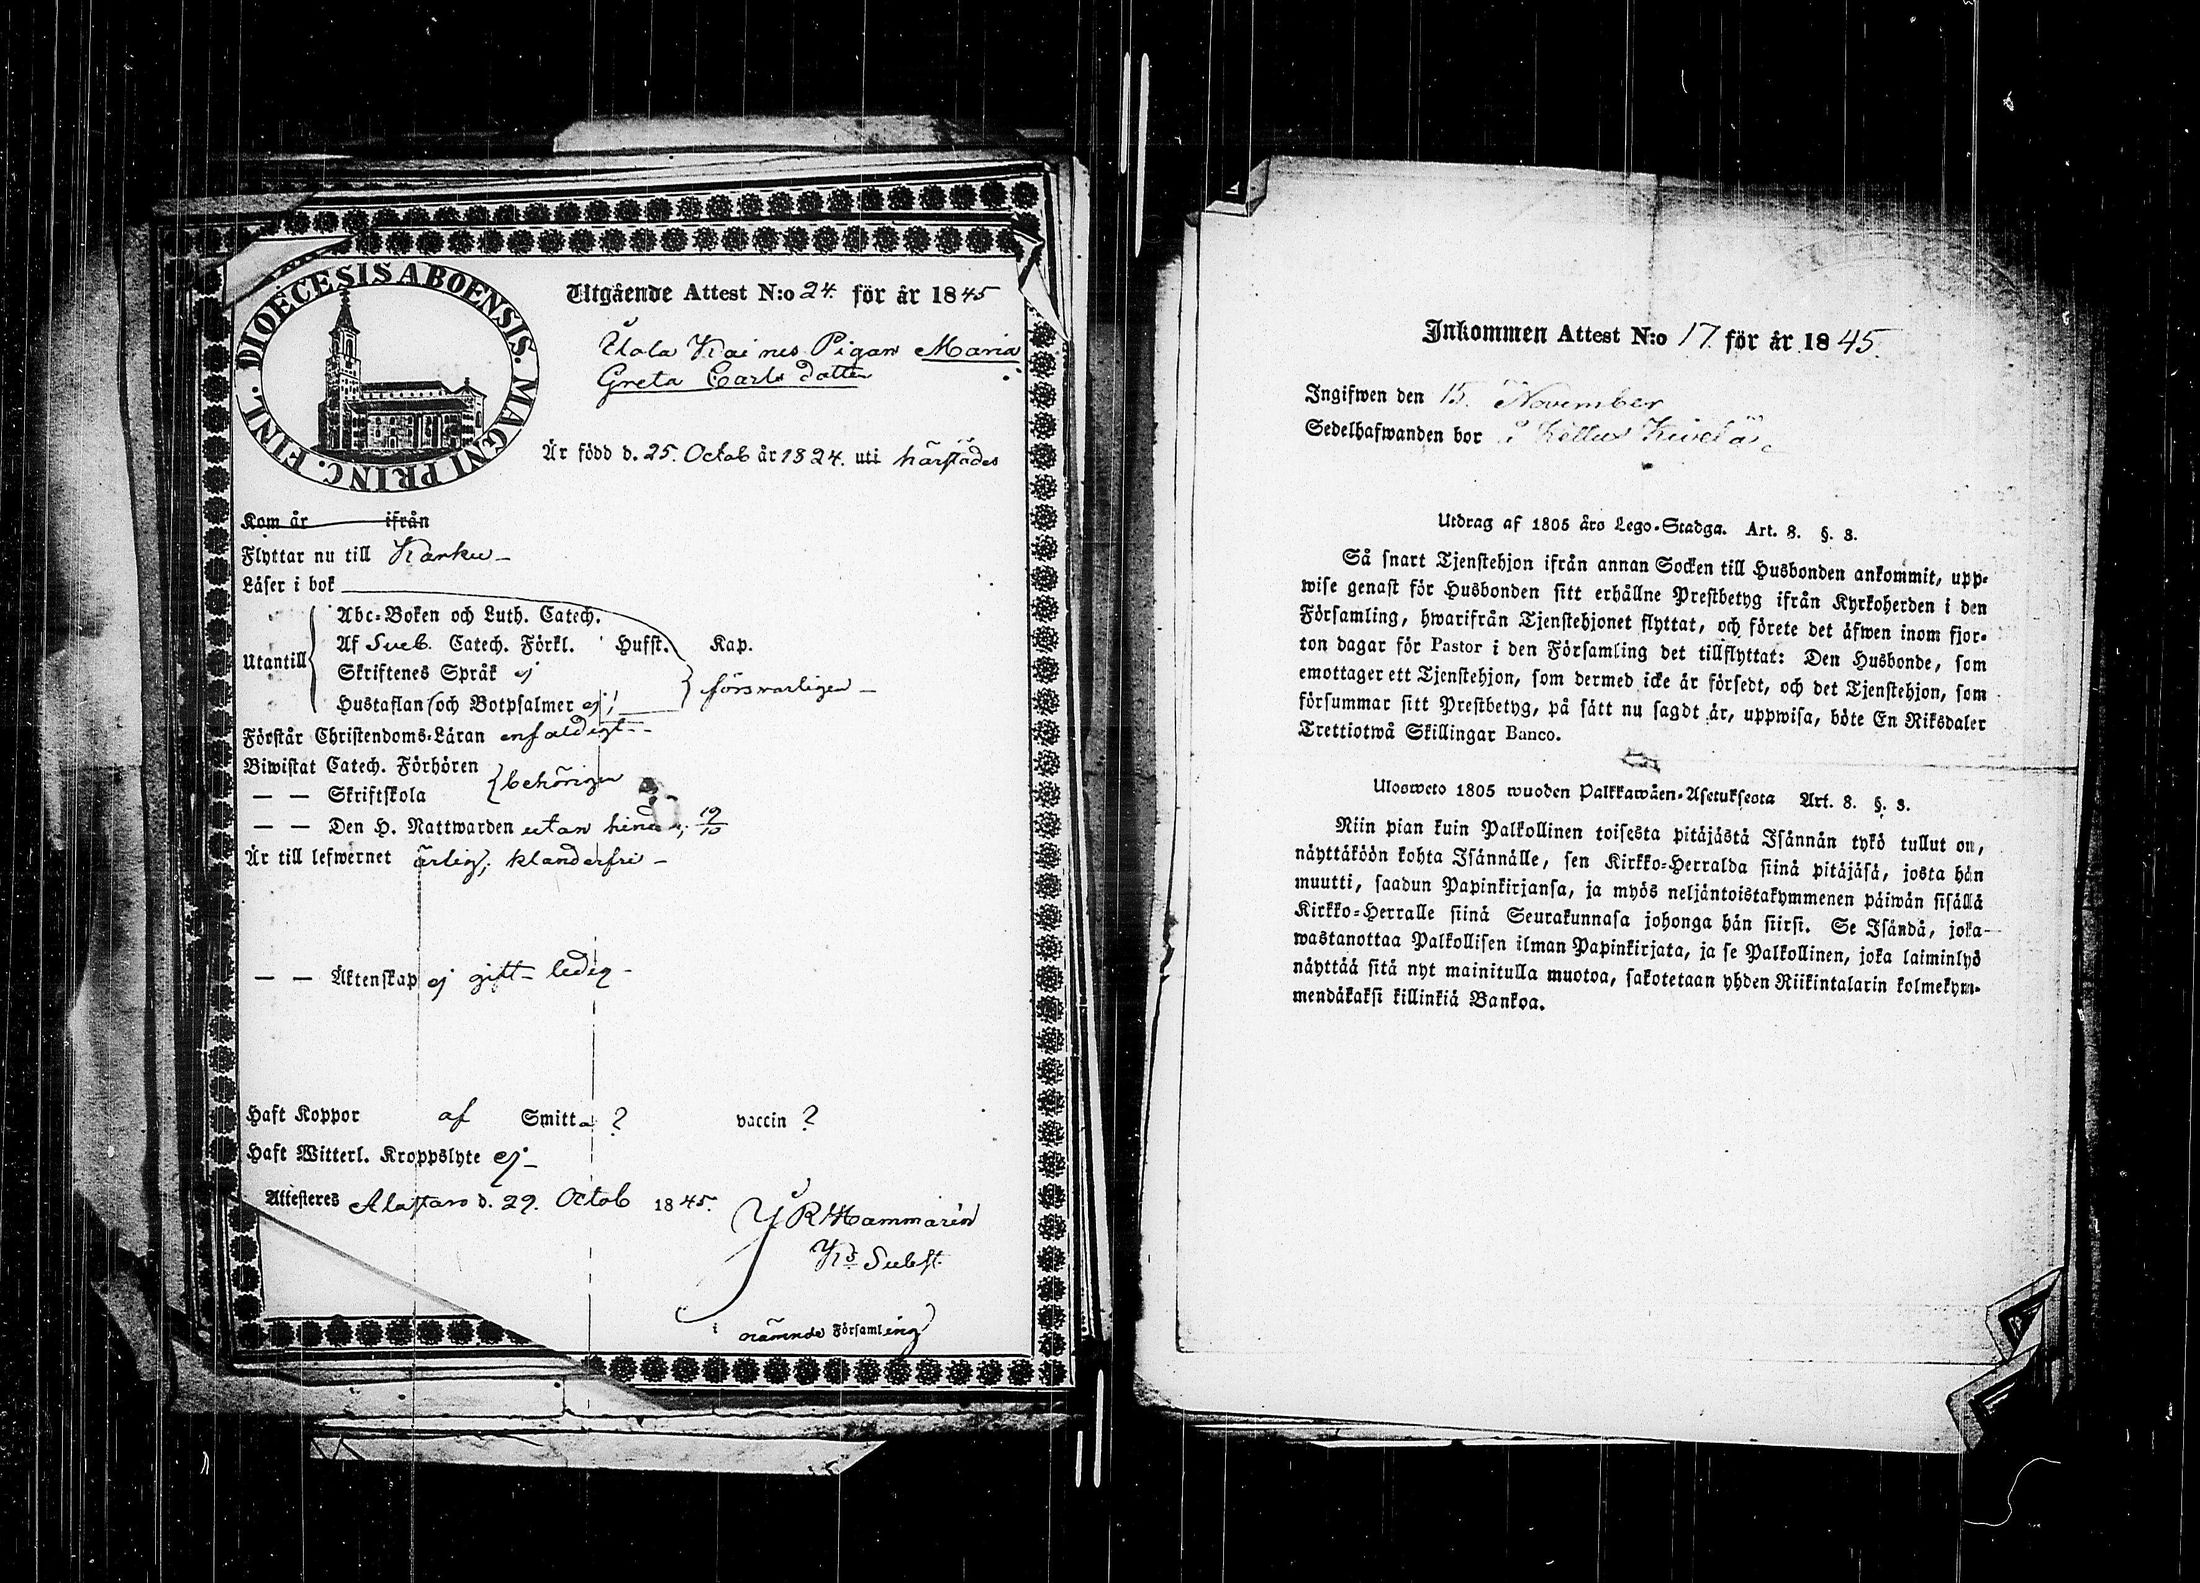 DIOECESIS ABOENSIS. MAGNI PRINC. FINL.
Utgående Attest N:o 24. för år 1845
Kaines Pigan Maria
Greta Carls dotter
Är född d. 25. Octob år 1824. uti härstädes
Kom år ifrån
Flyttar nu till Karku –
Läser i bok
Utantill
Abc-Boken och Luth. Catech.
Af Sveb. Catech. Förkl. Husst. Kap.
Skriftenes Språk ej
försvarligen –
Hustaflan (och Botpsalmer ej;
Förstår Christendoms-Läran enfaldigt –
Biwistat Catech. Förhören
behörigen
— — Skriftskola
— — Den H. Nattwarden utan 19/10
Är till lefwernet ärlig; klanderfri –
— — Äktenskap ej gift – ledig –
Haft Koppor af Smitta ? vaccin ?
Haft Witterl. Kroppslyte ej –
Attesteres Alastaro d. 29. Octob 1845.
Hammarén
Subst.
i nämnde Församling
Inkommen Attest N:o 17. för år 1845.
Ingifwen den 15. November
Sedelhafwanden bor
Utdrag af 1805 års Lego-Stadga. Art. 8. §. 3.
Så snart Tjenstehjon ifrån annan Socken till Husbonden ankommit, upp-
wise genast för Husbonden sitt erhållne Prestbetyg ifrån Kyrkoherden i den
Församling, hwarifrån Tjenstehjonet flyttat, och förete det äfwen inom fjor-
ton dagar för Pastor i den Församling det tillflyttat: Den Husbonde, som
emottager ett Tjenstehjon, som dermed icke är försedt, och det Tjenstehjon, som
försummar sitt Prestbetyg, på sätt nu sagdt är, uppwisa, böte En Riksdaler
Trettiotwå Skillingar Banco.
Ulosweto 1805 wuoden Palkkawäen-Asetuksesta Art. 8. §. 3.
Niin pian kuin Palkollinen toisesta pitäjästä Isännän tykö tullut on,
näyttäköön kohta Isännälle, sen Kirkko-Herralda siinä pitäjäsä, josta hän
muutti, saadun Papinkirjansa, ja myös neljäntoistakymmenen päiwän sisällä
Kirkko-Herralle siinä Seurakunnasa johonga hän siirsi. Se Isändä, joka
wastanottaa Palkollisen ilman Papinkirjata, ja se Palkollinen, joka laiminlyö
näyttää sitä nyt mainitulla muotoa, sakotetaan yhden Riikintalarin kolmekym-
mendäkaksi killinkiä Bankoa.